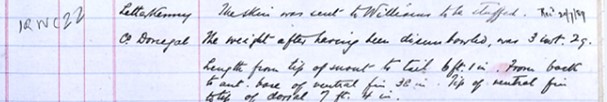 Letterkenny The skin was sent to Williams to be stuffed.
Co. Donegal The weight after having been disembowled, was 3 cwt. 2q.
Length from tip of snout to tail 6 ft. 1 in. From back
to ant. base of ventral fin 38 in. Tip of ventral fin
to tip of dorsal 7 ft. 4 in.